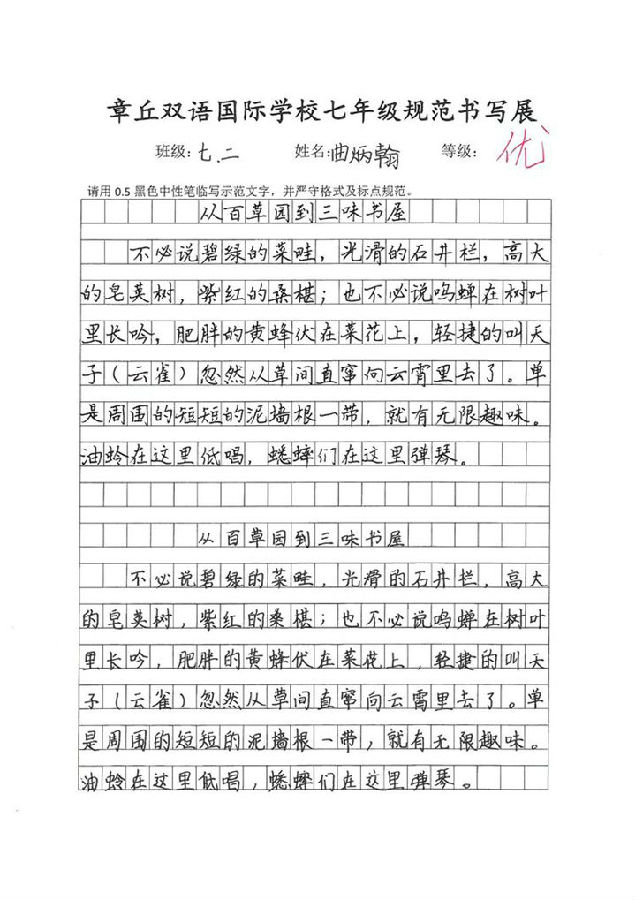 章丘双语国际学校七年级规范书写展
班级:七.二 姓名:曲炳翰 等级: 优
请用 0.5 黑色中性笔临写示范文字，并严守格式及标点规范。
从百草园到三味书屋
不必说碧绿的菜畦，光滑的石井栏，高大
的皂荚树，紫红的桑椹；也不必说鸣蝉在树叶
里长吟，肥胖的黄蜂伏在菜花上，轻捷的叫天
子（云雀）忽然从草间直窜向云霄里去了。单
是周围的短短的泥墙根一带，就有无限趣味。
油蛉在这里低唱，蟋蟀们在这里弹琴。
从百草园到三味书屋
不必说碧绿的菜畦，光滑的石井栏，高大
的皂荚树，紫红的桑椹；也不必说鸣蝉在树叶
里长吟，肥胖的黄蜂伏在菜花上，轻捷的叫天
子（云雀）忽然从草间直窜向云霄里去了。单
是周围的短短的泥墙根一带，就有无限趣味。
油蛉在这里低唱，蟋蟀们在这里弹琴。